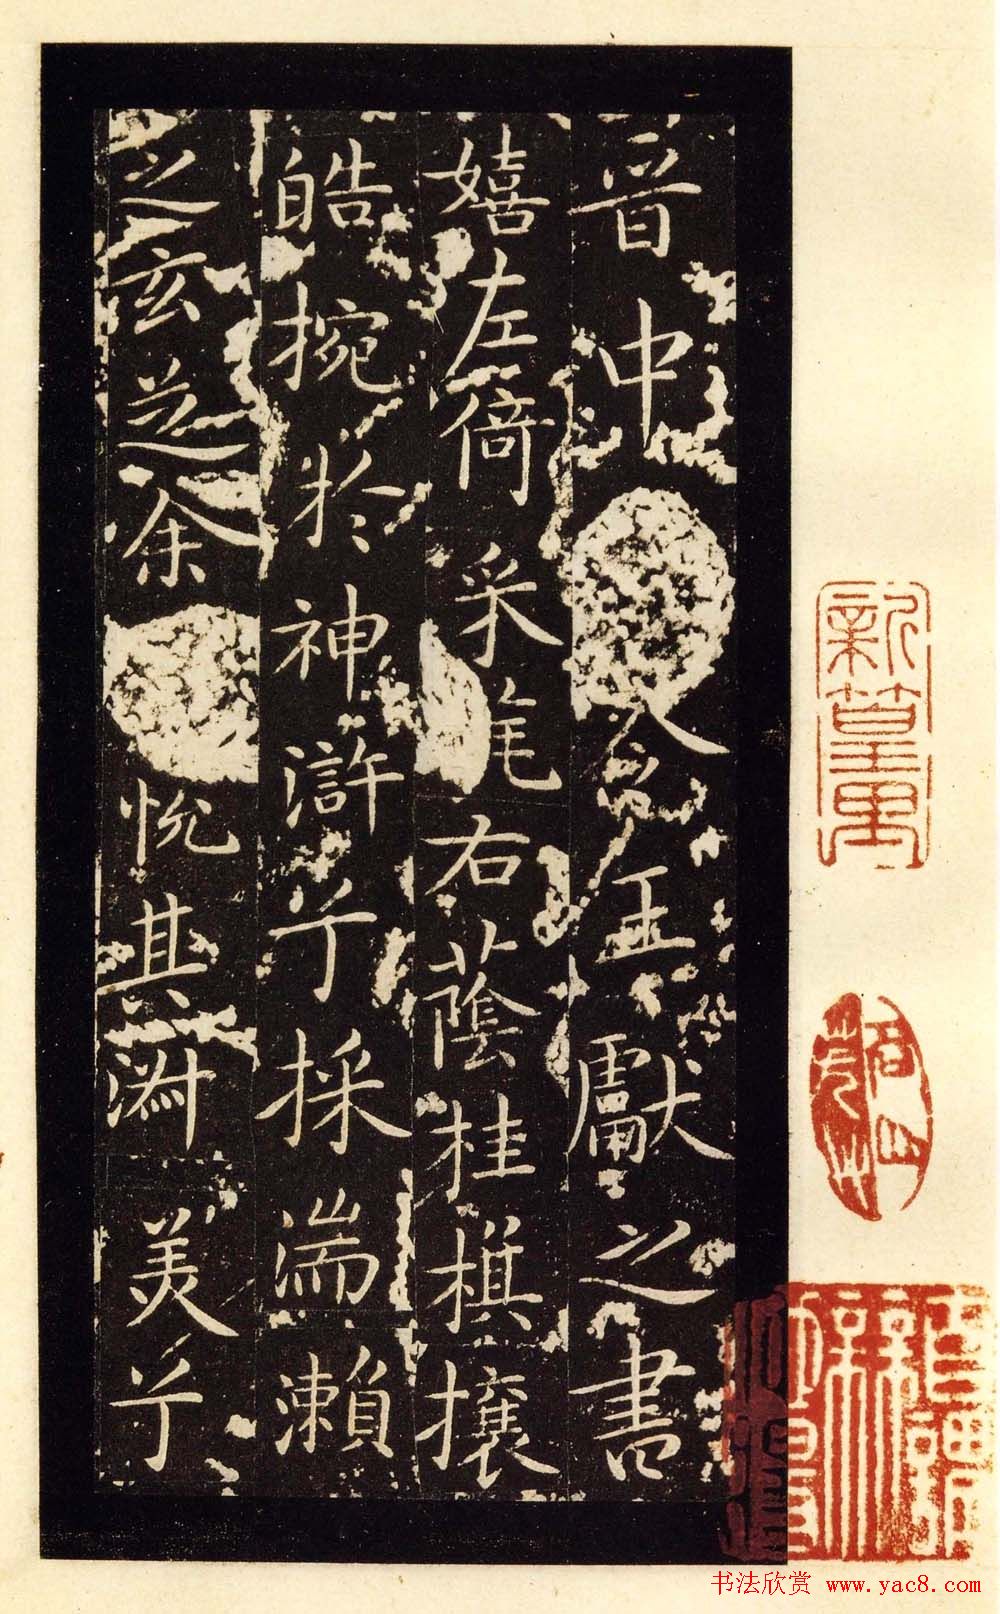 晉中令王獻之書
嬉左倚采旄右蔭桂棋攘
皓捥於神滸兮採湍瀨
之玄芝余悅其淑美兮
书法欣赏 www.yac8.com